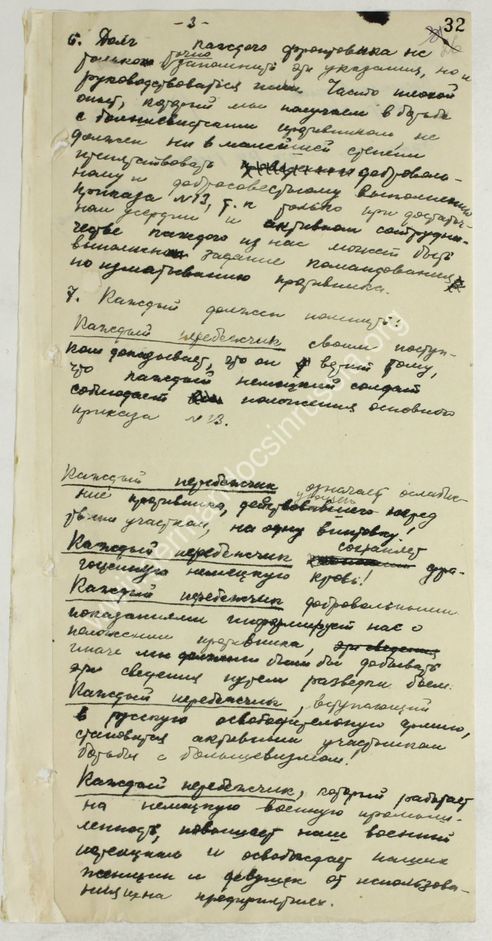 - 3 -
32
6. Долг каждого фронтовика не
только точно запомнить эти указания, но и
руководствоваться ими. Часто плохой
опыт, который мы получаем в борьбе
с большевистским противником не
должен ни в малейшей степени
препятствовать доброволь-
ному и добросовестному выполнению
приказа №13, т.к. только при достаточ-
ном усердии и активном сотрудни-
честве каждого из нас может быть
выполнено задание командования
по изматыванию противника.
7. Каждый должен помнить:
Каждый перебежчик своим поступ-
ком доказывает, что он верит тому,
что каждый немецкий солдат
соблюдает положения основного
приказа №13.
Каждый перебежчик означает ослабле-
ние противника, действующего перед
участком, на одну винтовку!
Каждый перебежчик сохраняет дра-
гоценную немецкую кровь!
Каждый перебежчик добровольными
показаниями информирует нас о
положении противника,
иначе мы должны были бы добывать
эти сведения путем разведки боем.
Каждый перебежчик, вступающий
в русскую освободительную армию,
становится активным участником
борьбы с большевизмом!
Каждый перебежчик, который работает
на немецкую военную промыш-
ленность, повышает наш военный
потенциал и освобождает наших
женщин и девушек от использова-
ния их на предприятиях.
www.germandocsinrussia.org